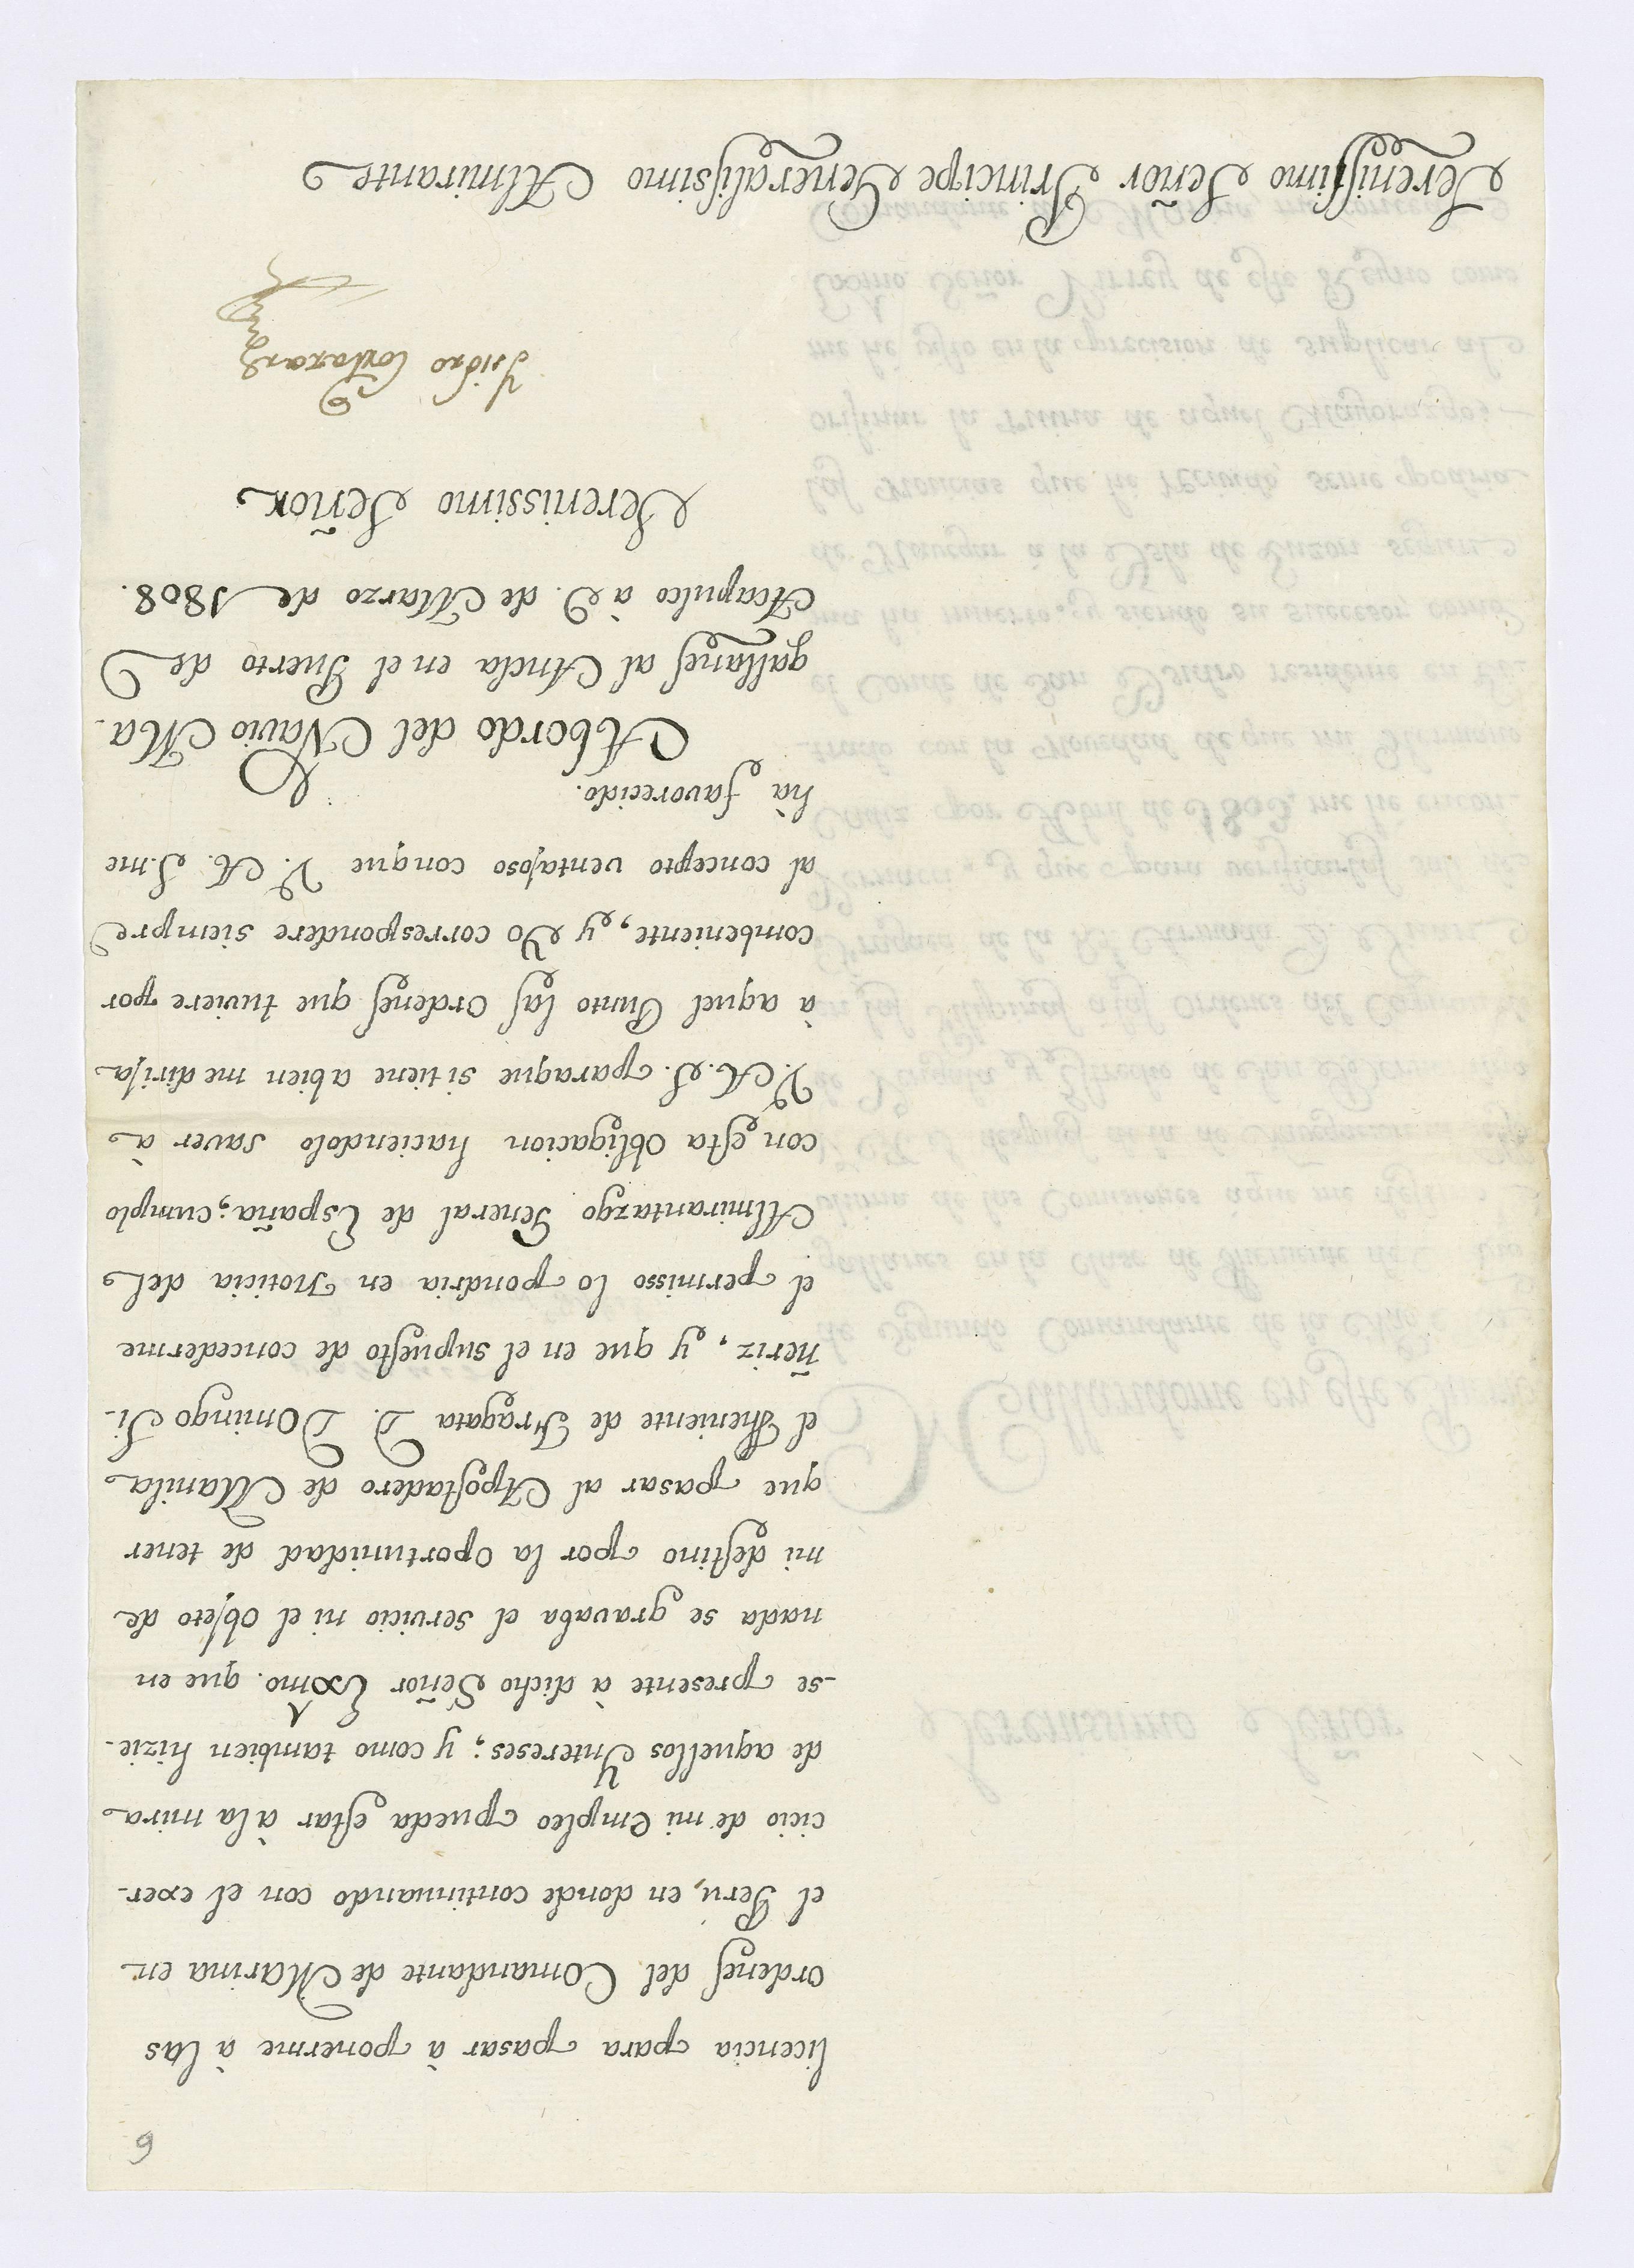 6
licencia para pasar à ponerme à las
ordenes del Comandante de Marina en
el Perú, en donde continuando con el exer-
cicio de mi Empleo pueda estar à la mira
de aquellos Yntereses; y como tambien hizie-
se presente à dicho Señor Exmo. que en
nada se gravaba el servicio ni el objeto de
mi destino por la oportunidad de tener
que pasar al Apostadero de Manila
el Theniente de Fragata D. Domingo Ji-
ñeriz, y que en el supuesto de concederme
el permisso lo pondria en noticia del
Almirantazgo General de España; cumplo
con esta obligacion haciendolo saver à
V. A. S. paraque si tiene abien me dirija
à aquel Punto las ordenes que tuviere por
combeniente, y Yo correspondere siempre
al concepto ventajoso conque V. A. S. me
hà favorecido.
Abordo del Navio Ma-
gallanes al Ancla en el Puerto de
Acapulco à 2. de Marzo de 1808.
Serenissimo Señor
Ysidro Cortazar
Serenissimo Señor Principe Generalisimo Almirante